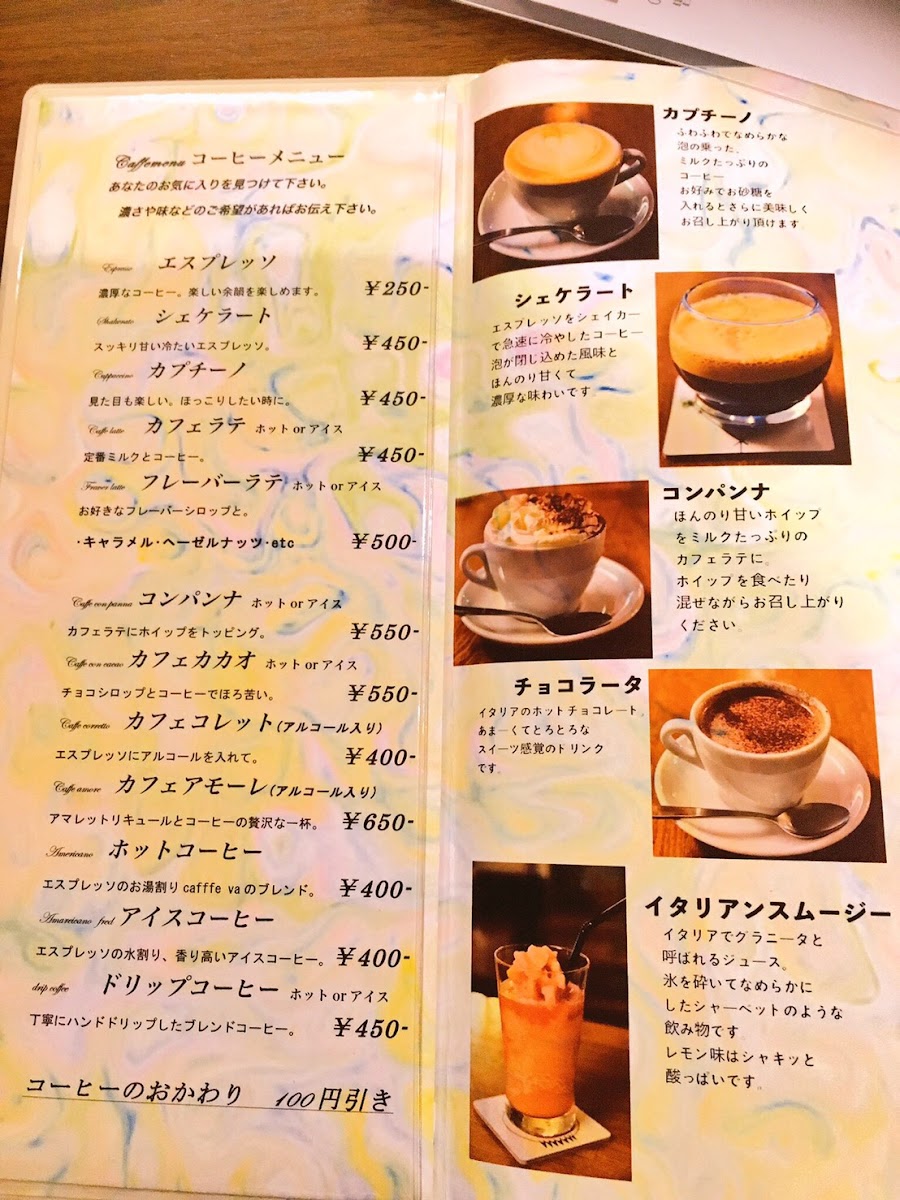 Caffemenu コーヒーメニュー
あなたのお気に入りを見つけて下さい。
濃さや味などのご希望があればお伝え下さい。
Espresso エスプレッソ
濃厚なコーヒー。楽しい余韻を楽しめます。 ¥250-
Shakerato シェケラート
スッキリ甘い冷たいエスプレッソ。 ¥450-
Cappuccino カプチーノ
見た目も楽しい。ほっこりしたい時に。 ¥450-
Caffe latte カフェラテ ホット or アイス
定番ミルクとコーヒー。 ¥450-
Fraver latte フレーバーラテ ホット or アイス
お好きなフレーバーシロップと。
・キャラメル・ヘーゼルナッツ・etc ¥500-
Caffe con panna コンパンナ ホット or アイス
カフェラテにホイップをトッピング。 ¥550-
Caffe con cacao カフェカカオ ホット or アイス
チョコシロップとコーヒーでほろ苦い。 ¥550-
Caffe corretto カフェコレット(アルコール入り)
エスプレッソにアルコールを入れて。 ¥400-
Caffe amore カフェアモーレ(アルコール入り)
アマレットリキュールとコーヒーの贅沢な一杯。 ¥650-
Americano ホットコーヒー
エスプレッソのお湯割り cafffe va のブレンド。 ¥400-
Amareicano fred アイスコーヒー
エスプレッソの水割り、香り高いアイスコーヒー。 ¥400-
drip coffee ドリップコーヒー ホット or アイス
丁寧にハンドドリップしたブレンドコーヒー。 ¥450-
コーヒーのおかわり 100円引き
カプチーノ
ふわふわでなめらかな
泡の乗った、
ミルクたっぷりの
コーヒー
お好みでお砂糖を
入れるとさらに美味しく
お召し上がり頂けます。
シェケラート
エスプレッソをシェイカー
で急速に冷やしたコーヒー
泡が閉じ込めた風味と
ほんのり甘くて
濃厚な味わいです。
コンパンナ
ほんのり甘いホイップ
をミルクたっぷりの
カフェラテに。
ホイップを食べたり
混ぜながらお召し上がり
ください。
チョコラータ
イタリアのホットチョコレート。
あまーくてとろとろな
スイーツ感覚のドリンク
です。
イタリアンスムージー
イタリアでグラニータと
呼ばれるジュース。
氷を砕いてなめらかに
したシャーベットのような
飲み物です
レモン味はシャキッと
酸っぱいです。